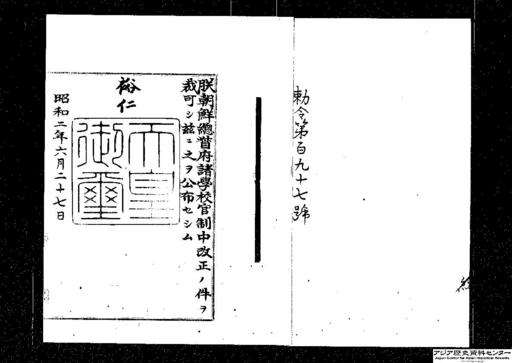 勅令第百九十七號
朕朝鮮總督府諸學校官制中改正ノ件ヲ
裁可シ茲ニ之ヲ公布セシム
裕仁
天皇御璽
昭和二年六月二十七日
アジア歴史資料センター
Japan Center for Asian Historical Records